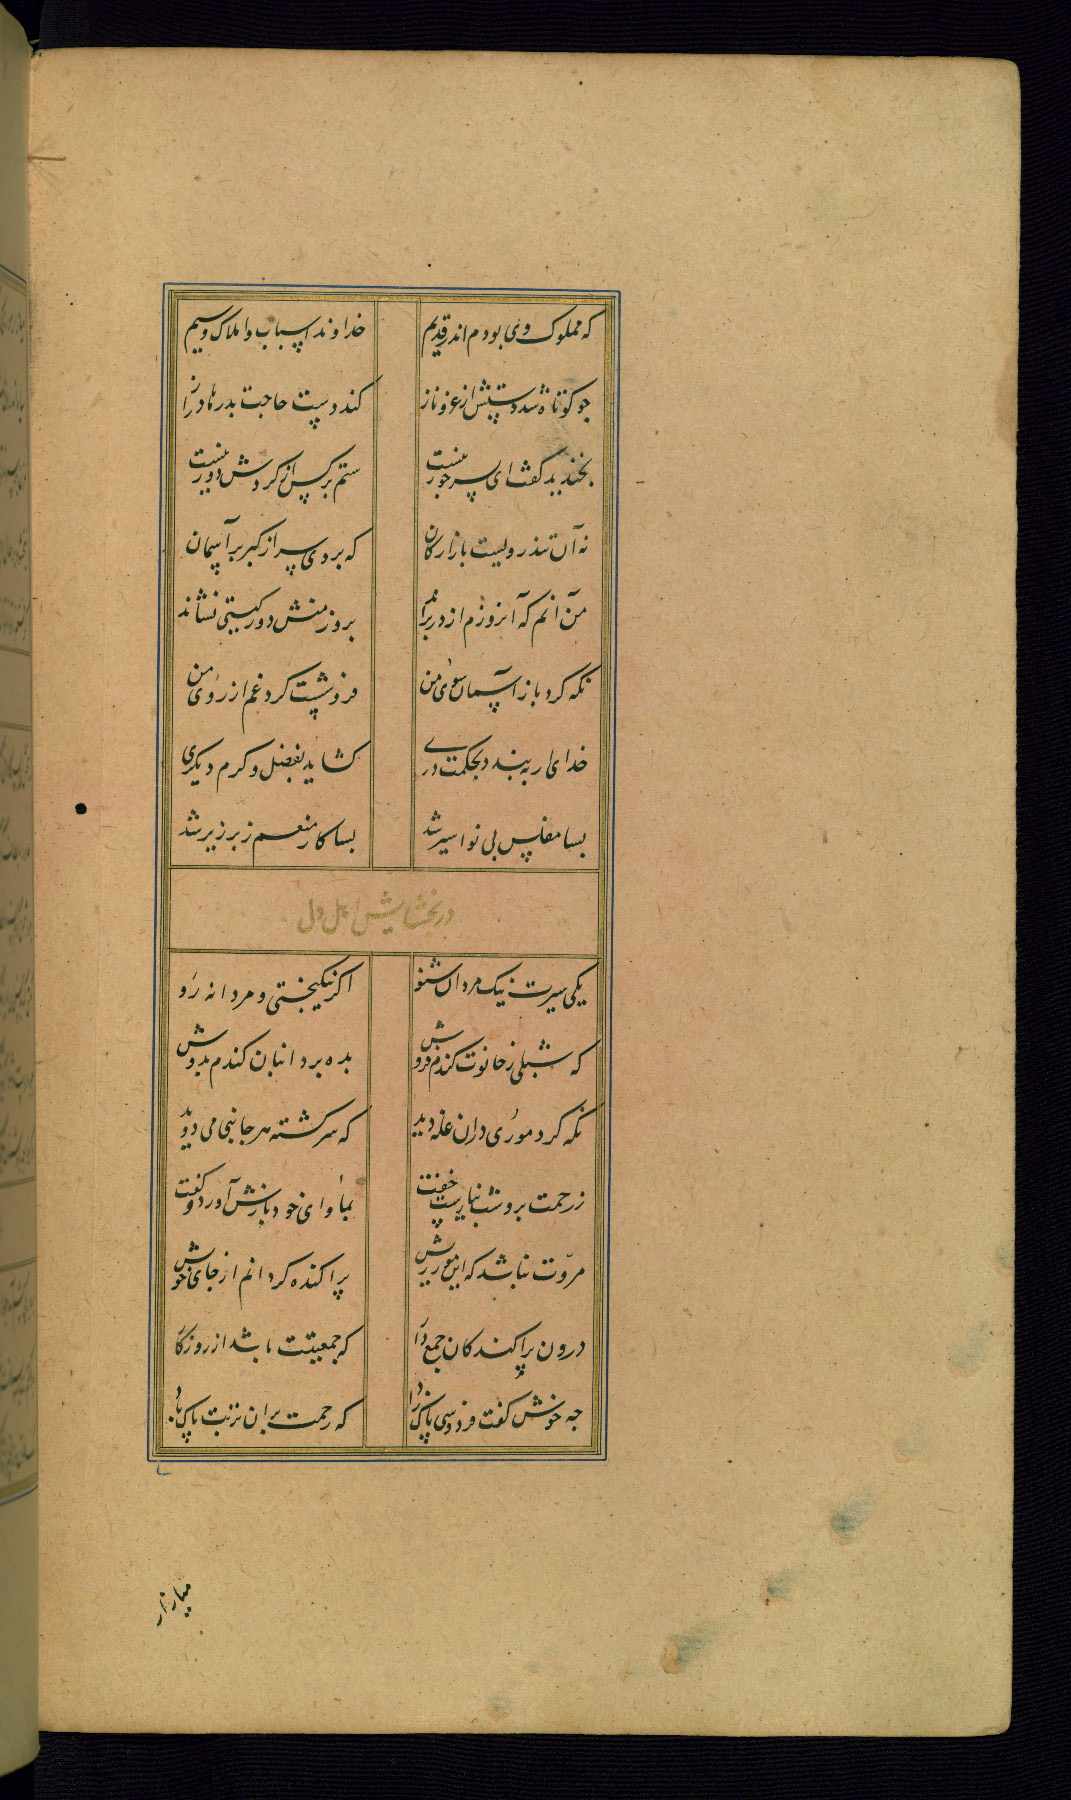 که مملوک وی بودم اندر قدیم خداوند اسباب و املاک و سیم
جو کوتاه شد دستش از عز و ناز کند دست حاجت بدرها دراز
بخندید گفت ای پسر جور نیست ستم بر کس از کردش دور نیست
نه آن تندرویست بازارکان که بردی سر از کبر بر آسمان
من آنم که آنروزم از در براند بروز منش دور کیتی نشاند
نکه کرد باز آسمان سوی من فروشست کرد غم از روی من
خدای ار به بندد بحکمت دری کشاید بفضل و کرم دیکری
بسا مفلس بی نوا سیر شد بسا کار منعم زبر زیر شد
در بخشایش اهل دل
یکی سیرت نیک مردان شنو اکر نیکبختی و مردانه رو
که شبلی ز حانوت کندم فروش بده برد انبان کندم بدوش
نکه کرد موری دران غله دید که سرکشته هر جانبی می دوید
ز رحمت برو شب نیارست خفت بمأوای خود بازش آورد و کفت
مروّت نباشد که این مور ریش پراکنده کردانم از جای خویش
درون پراکندکان جمع دار که جمعیتت باشد از روزکار
جه خوش کفت فردوسی پاک زاد که رحمت بران تربت پاک باد
میازار